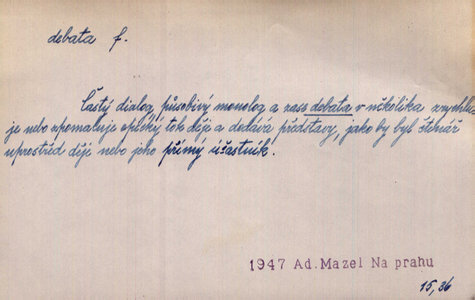 debata f.
Častý dialog, působivý monolog a zase debata v několika zrychlu
je nebo zpomaluje epický tok děje a dodává představy, jako by byl čtenář
uprostřed děje nebo jeho přímý účastník.
1947 Ad. Mazel Na prahu
15, 36